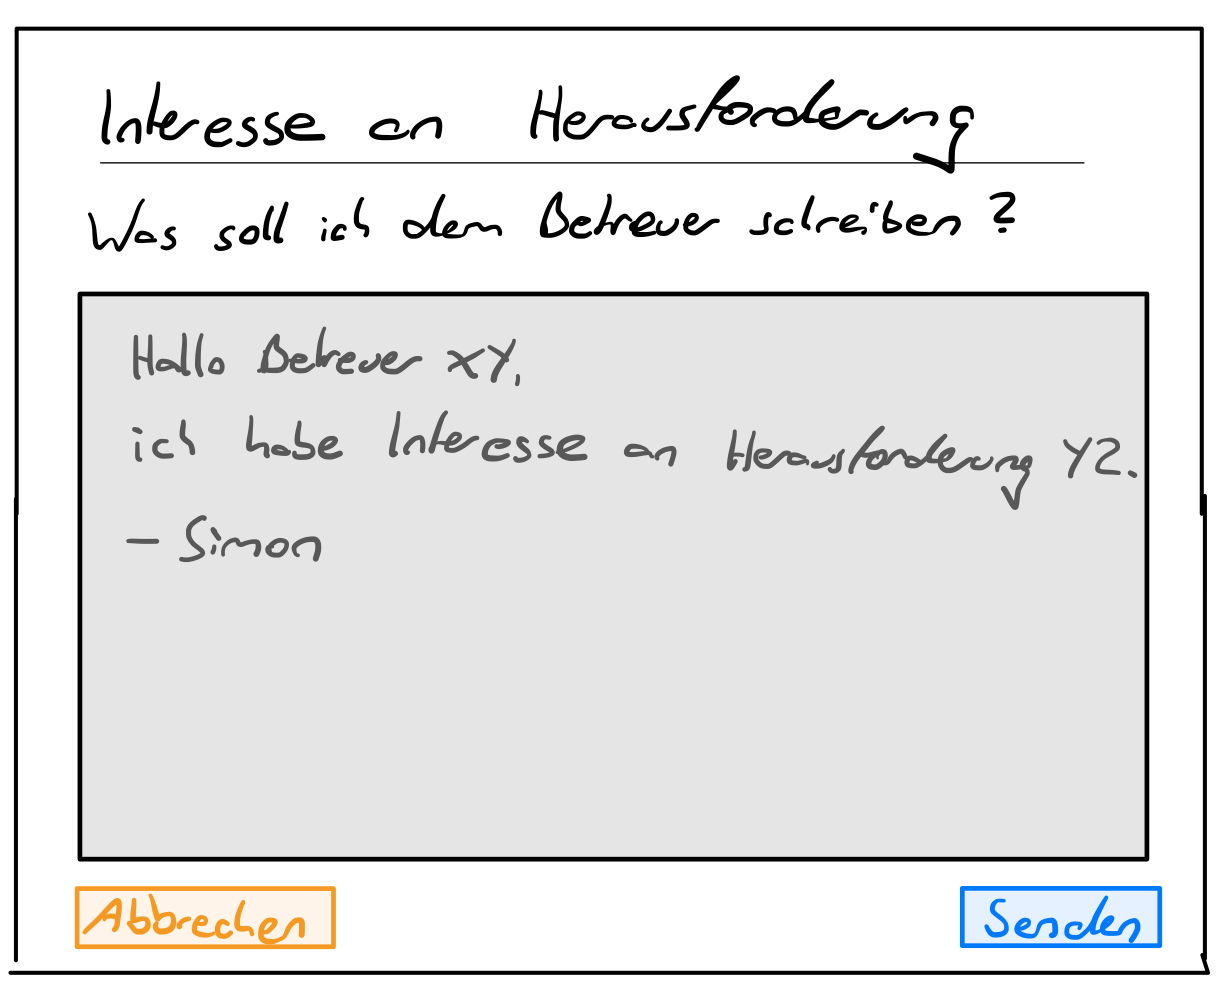 Interesse an Herausforderung
Was soll ich dem Betreuer schreiben?
Hallo Betreuer XY,
ich habe Interesse an Herausforderung YZ.
- Simon
Abbrechen
Senden